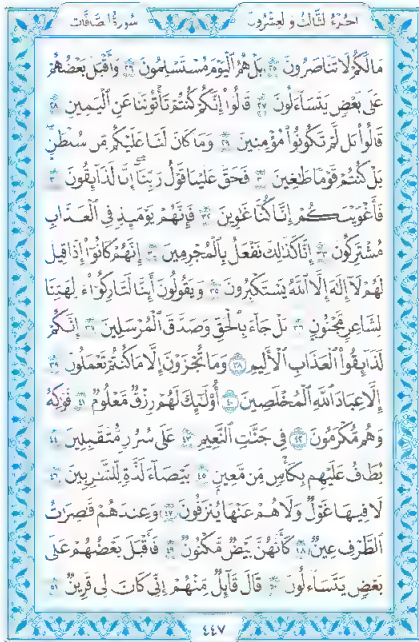 الجزء الثالث والعشرون سورة الصافات
مَا لَكُمْ لَا تَنَاصَرُونَ ٢٥ بَلْ هُمُ ٱلْيَوْمَ مُسْتَسْلِمُونَ ٢٦ وَأَقْبَلَ بَعْضُهُمْ
عَلَىٰ بَعْضٍ يَتَسَآءَلُونَ ٢٧ قَالُوٓا۟ إِنَّكُمْ كُنتُمْ تَأْتُونَنَا عَنِ ٱلْيَمِينِ ٢٨
قَالُوا۟ بَل لَّمْ تَكُونُوا۟ مُؤْمِنِينَ ٢٩ وَمَا كَانَ لَنَا عَلَيْكُم مِّن سُلْطَٰنٍۭ
بَلْ كُنتُمْ قَوْمًا طَٰغِينَ ٣٠ فَحَقَّ عَلَيْنَا قَوْلُ رَبِّنَآ إِنَّا لَذَآئِقُونَ ٣١
فَأَغْوَيْنَٰكُمْ إِنَّا كُنَّا غَٰوِينَ ٣٢ فَإِنَّهُمْ يَوْمَئِذٍ فِى ٱلْعَذَابِ
مُشْتَرِكُونَ ٣٣ إِنَّا كَذَٰلِكَ نَفْعَلُ بِٱلْمُجْرِمِينَ ٣٤ إِنَّهُمْ كَانُوٓا۟ إِذَا قِيلَ
لَهُمْ لَآ إِلَٰهَ إِلَّا ٱللَّهُ يَسْتَكْبِرُونَ ٣٥ وَيَقُولُونَ أَئِنَّا لَتَارِكُوٓا۟ ءَالِهَتِنَا
لِشَاعِرٍ مَّجْنُونٍۭ ٣٦ بَلْ جَآءَ بِٱلْحَقِّ وَصَدَّقَ ٱلْمُرْسَلِينَ ٣٧ إِنَّكُمْ
لَذَآئِقُوا۟ ٱلْعَذَابِ ٱلْأَلِيمِ ٣٨ وَمَا تُجْزَوْنَ إِلَّا مَا كُنتُمْ تَعْمَلُونَ ٣٩
إِلَّا عِبَادَ ٱللَّهِ ٱلْمُخْلَصِينَ ٤٠ أُو۟لَٰٓئِكَ لَهُمْ رِزْقٌ مَّعْلُومٌ ٤١ فَوَٰكِهُ
وَهُم مُّكْرَمُونَ ٤٢ فِى جَنَّٰتِ ٱلنَّعِيمِ ٤٣ عَلَىٰ سُرُرٍ مُّتَقَٰبِلِينَ ٤٤
يُطَافُ عَلَيْهِم بِكَأْسٍ مِّن مَّعِينٍۭ ٤٥ بَيْضَآءَ لَذَّةٍ لِّلشَّٰرِبِينَ ٤٦
لَا فِيهَا غَوْلٌ وَلَا هُمْ عَنْهَا يُنزَفُونَ ٤٧ وَعِندَهُمْ قَٰصِرَٰتُ
ٱلطَّرْفِ عِينٌ ٤٨ كَأَنَّهُنَّ بَيْضٌ مَّكْنُونٌ ٤٩ فَأَقْبَلَ بَعْضُهُمْ عَلَىٰ
بَعْضٍ يَتَسَآءَلُونَ ٥٠ قَالَ قَآئِلٌ مِّنْهُمْ إِنِّى كَانَ لِى قَرِينٌ ٥١
٤٤٧